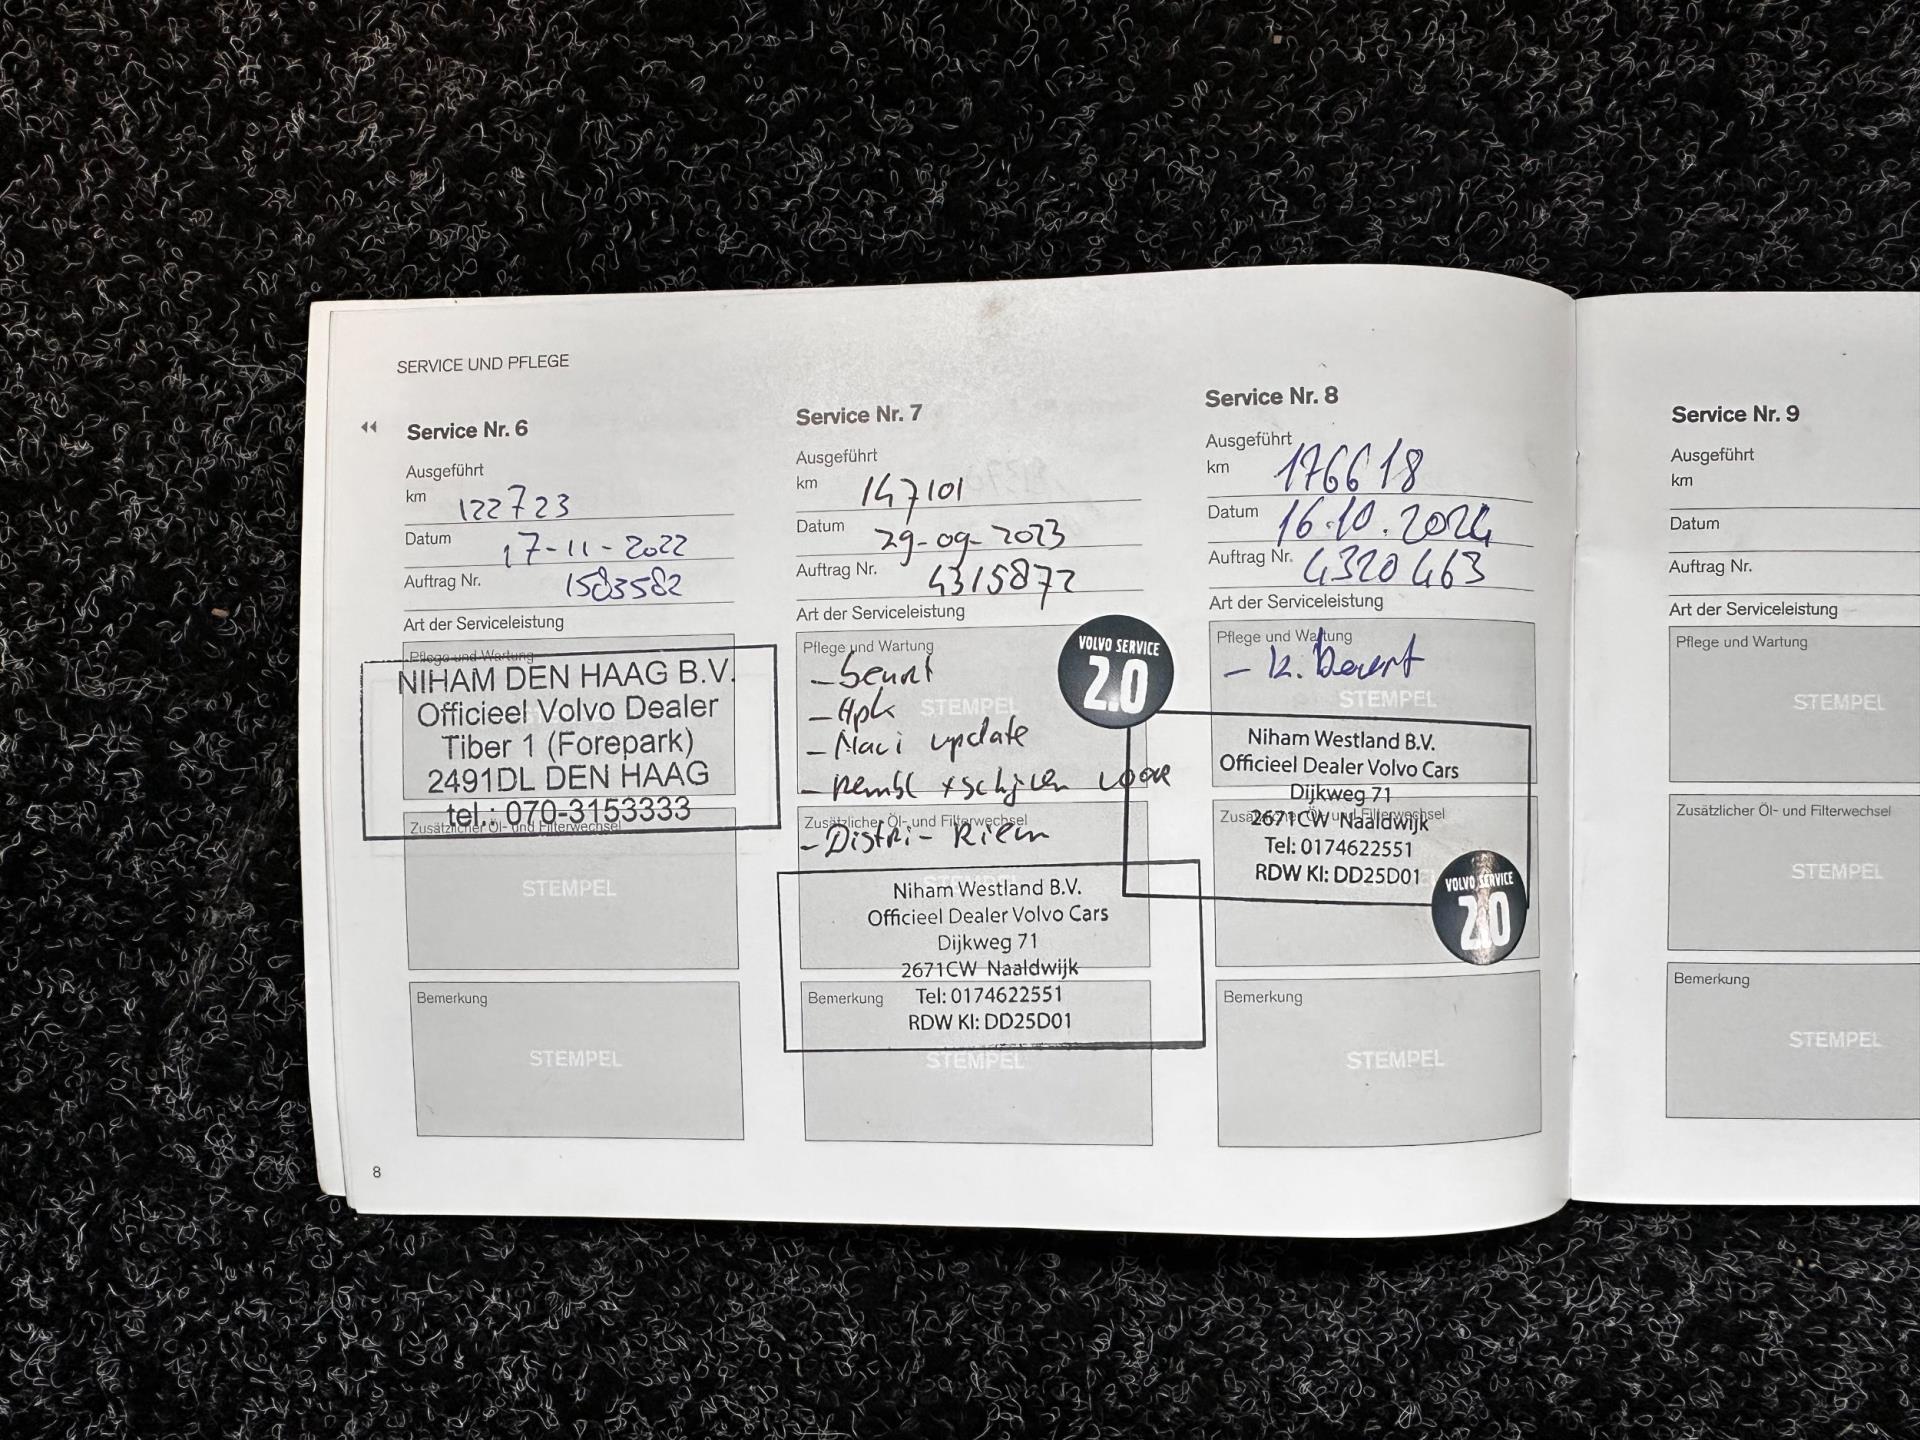 SERVICE UND PFLEGE
Service Nr. 6
Ausgeführt
km 122723
Datum 17-11-2022
Auftrag Nr. 1583582
Art der Serviceleistung
Pflege und Wartung
NIHAM DEN HAAG B.V.
Officieel Volvo Dealer
Tiber 1 (Forepark)
2491DL DEN HAAG
tel.: 070-3153333
Zusätzlicher Öl- und Filterwechsel
STEMPEL
Bemerkung
STEMPEL
8
Service Nr. 7
Ausgeführt
km 147101
Datum 29-09-2023
Auftrag Nr. 4315872
Art der Serviceleistung
Pflege und Wartung
VOLVO SERVICE
2.0
STEMPEL
- Apk
- update
- Remбl + schijven voor
Zusätzlicher Öl- und Filterwechsel
- Distri- Riem
Niham Westland B.V.
Officieel Dealer Volvo Cars
Dijkweg 71
2671CW Naaldwijk
Bemerkung
Tel: 0174622551
RDW KI: DD25D01
STEMPEL
Service Nr. 8
Ausgeführt
km 176618
Datum 16.10.2024
Auftrag Nr. 4320463
Art der Serviceleistung
Pflege und Wartung
- k. beurt
STEMPEL
Niham Westland B.V.
Officieel Dealer Volvo Cars
Dijkweg 71
Zusätzlicher Öl- und Filterwechsel
2671CW Naaldwijk
Tel: 0174622551
RDW KI: DD25D01
VOLVO SERVICE
2.0
Bemerkung
STEMPEL
Service Nr. 9
Ausgeführt
km
Datum
Auftrag Nr.
Art der Serviceleistung
Pflege und Wartung
STEMPEL
Zusätzlicher Öl- und Filterwechsel
STEMPEL
Bemerkung
STEMPEL